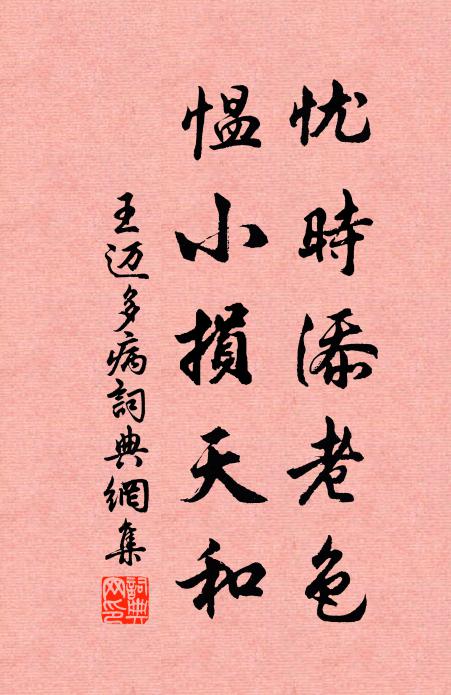 忧時添老色
愠小損天和
王迈多病詞典網集
詞典网印